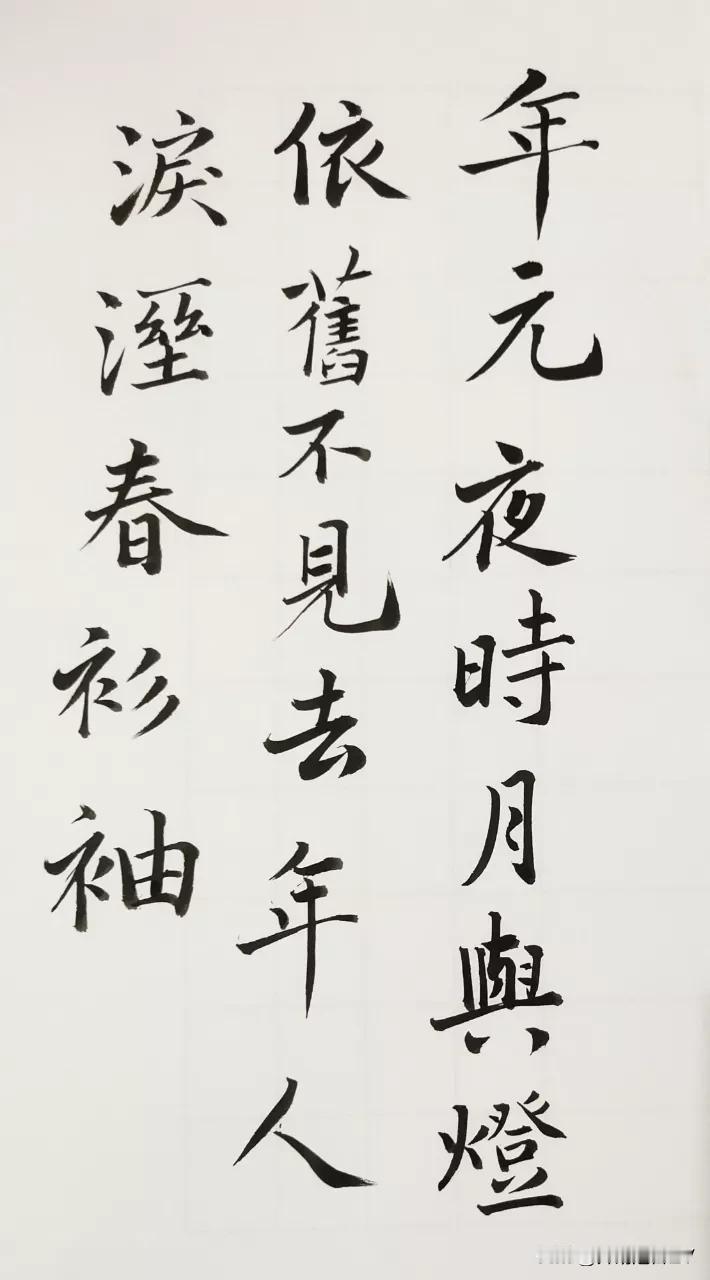 年元夜時月與燈
依舊不見去年人
淚溼春衫袖